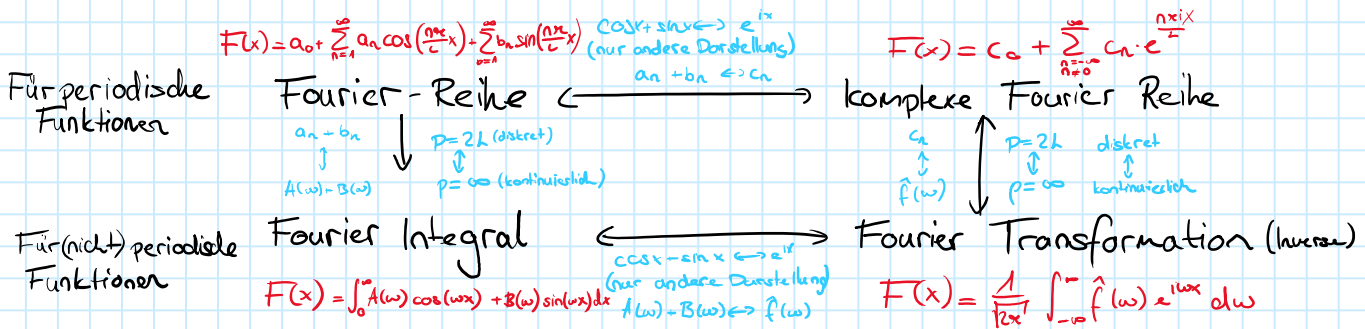 F(x) = a₀ + ∑_{n=1}^{∞} aₙ cos(nπ/L x) + ∑_{n=1}^{∞} bₙ sin(nπ/L x)
cosx + sinx ↔ e^{ix}
(nur andere Darstellung)
aₙ + bₙ ↔ cₙ
F(x) = c₀ + ∑_{n=-∞, n≠0}^{∞} cₙ · e^{nπix/L}
Für periodische
Funktionen
Fourier-Reihe ↔ komplexe Fourier Reihe
aₙ - bₙ
↕
A(ω) - B(ω)
↓
p = 2L (diskret)
↕
p = ∞ (kontinuierlich)
cₙ
↕
f̂(ω)
↕
p = 2L
↕
p = ∞
diskret
↕
kontinuierlich
Für (nicht) periodische
Funktionen
Fourier Integral ↔ Fourier Transformation (Inverse)
cosx - sinx ↔ e^{ix}
(nur andere Darstellung)
A(ω) - B(ω) ↔ f̂(ω)
F(x) = ∫₀^∞ A(ω) cos(ωx) + B(ω) sin(ωx) dx
F(x) = 1/√2π ∫_{-∞}^{∞} f̂(ω) e^{iωx} dω